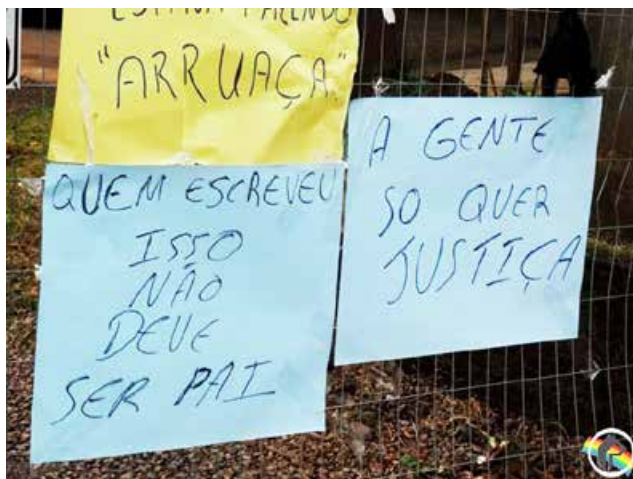 ESTAVA FAZENDO
"ARRUAÇA."
QUEM ESCREVEU
ISSO
NÃO
DEVE
SER PAI
A GENTE
SO QUER
JUSTIÇA